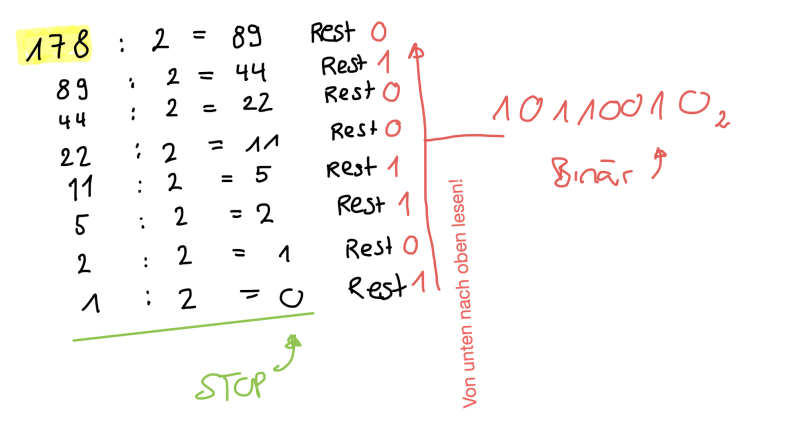 178 : 2 = 89 Rest 0
89 : 2 = 44 Rest 1
44 : 2 = 22 Rest 0
22 : 2 = 11 Rest 0
11 : 2 = 5 Rest 1
5 : 2 = 2 Rest 1
2 : 2 = 1 Rest 0
1 : 2 = 0 Rest 1
STOP
Von unten nach oben lesen!
10110010₂
Binär